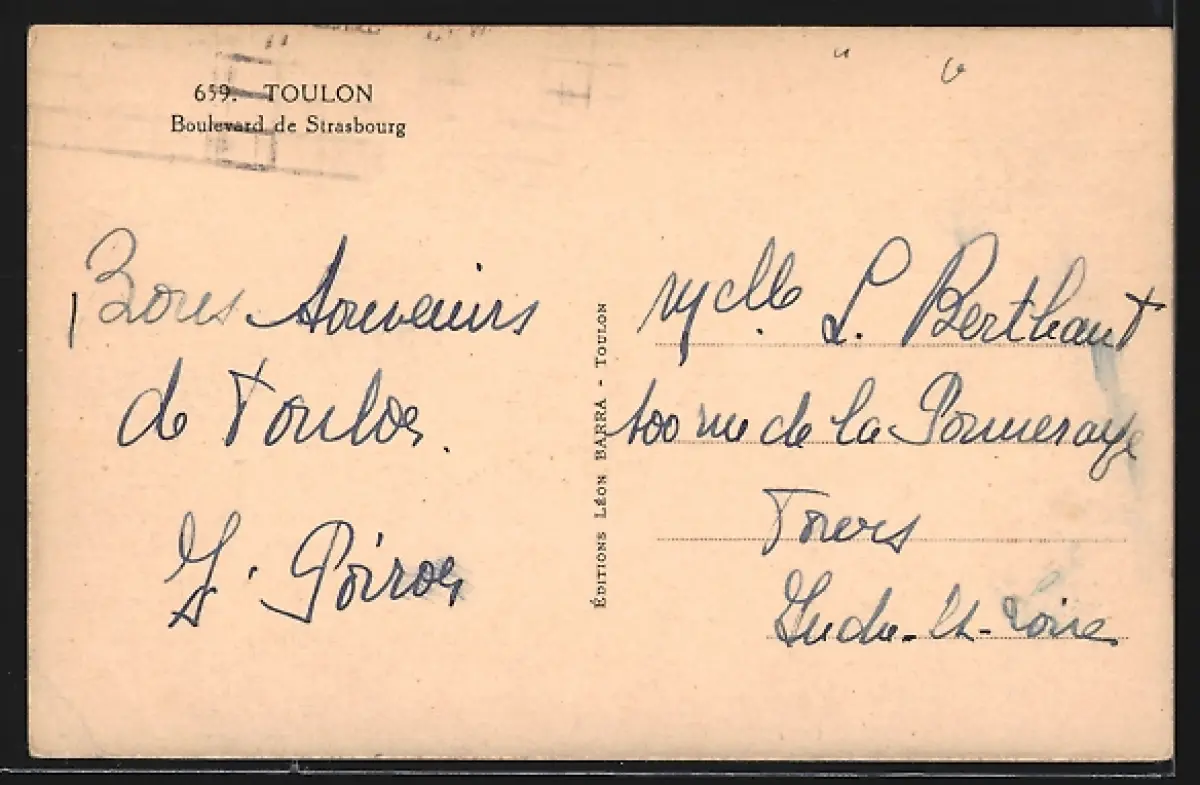 659. TOULON
Boulevard de Strasbourg
Bons Souvenirs
de Toulon.
Y. Poiron
ÉDITIONS LÉON BARRA - TOULON
Melle L. Berthaut
100 rue de la Pommeraye
Tours
Indre-et-Loire